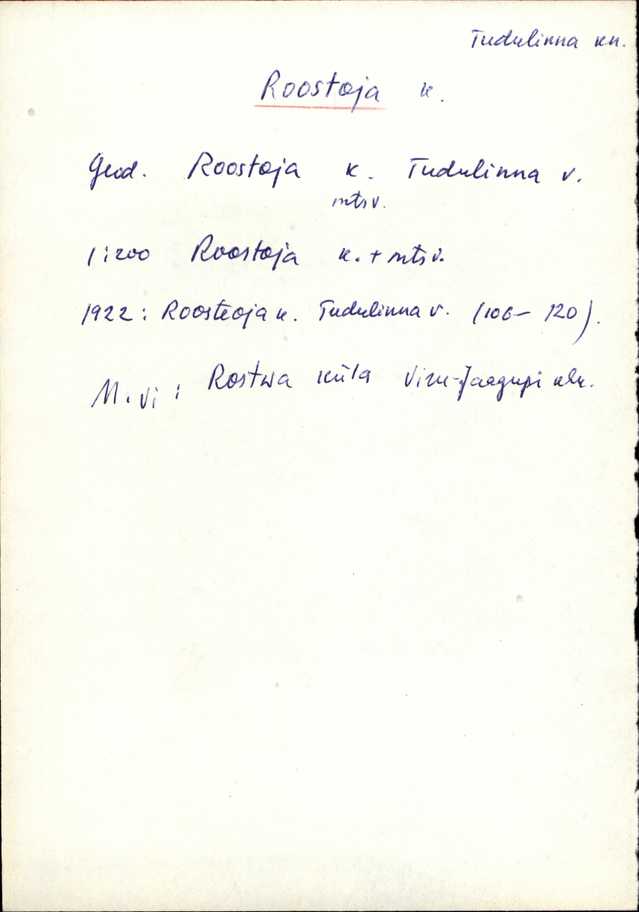 Tudulinna kn.
Roostoja k.
Geod. Roostoja k. Tudulinna v.
mtsv.
1:200 Roostoja k. + mtsv.
1922: Roosteoja k. Tudulinna v. (106-120).
M.vi: Rostwa küla Viru-Jaagupi klk.